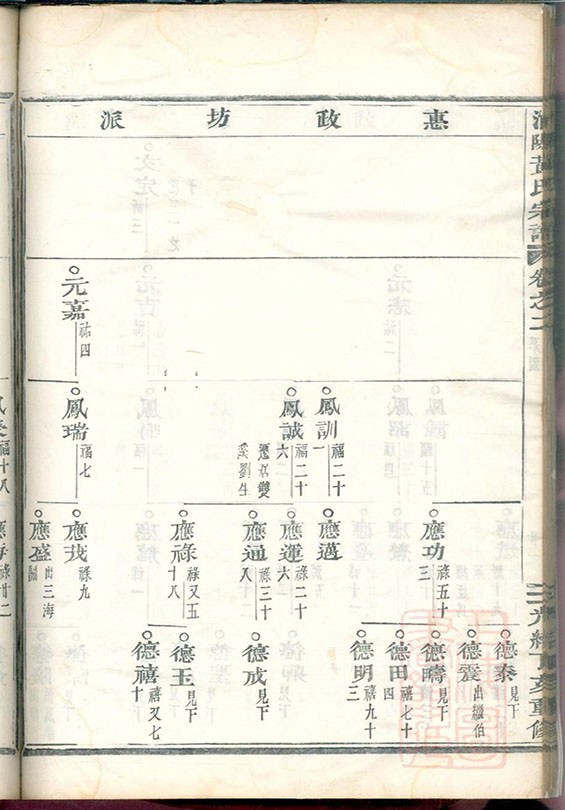 惠政坊派
黃氏宗譜
卷之二
光緒丁亥重修
元嘉 祐四
鳳訓 福二十一
鳳誠 福二十六
鳳瑞 福七
應功 祿五十三
應邁
應運 祿二十六
應通 祿三十八
應祿 祿又五十八
應我 祿九
應盛 出三海
德泰 見下
德震 出繼伯
德疇 見下
德田 禧七十四
德明 禧九十三
德成 見下
德玉 見下
德禧 禧又七十
福十八